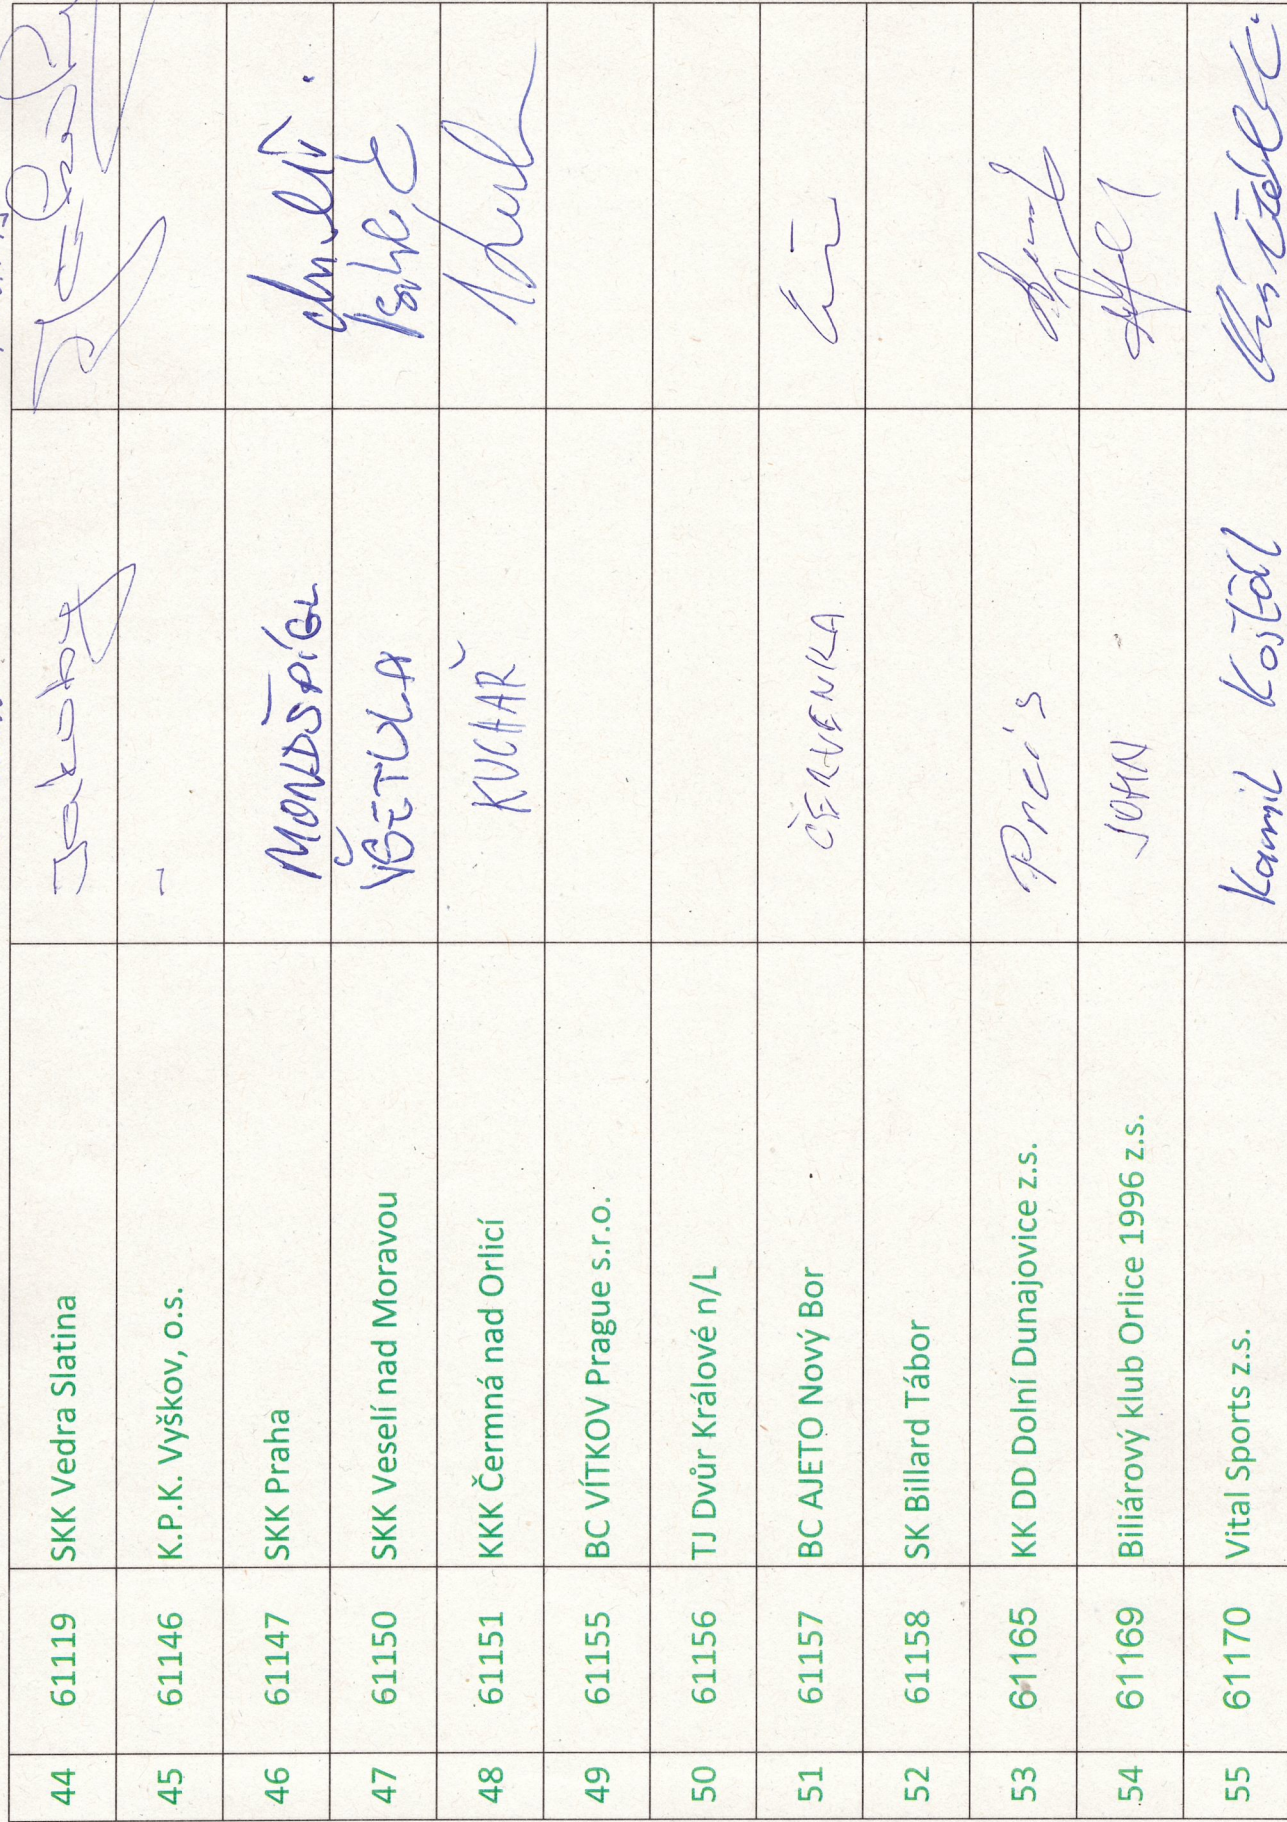 44 61119 SKK Vedra Slatina Jakoby
45 61146 K.P.K. Vyškov, o.s. -
46 61147 SKK Praha MONDŠPÍGL
47 61150 SKK Veselí nad Moravou VŠETULA
48 61151 KKK Čermná nad Orlicí KUCHAŘ
49 61155 BC VÍTKOV Prague s.r.o.
50 61156 TJ Dvůr Králové n/L
51 61157 BC AJETO Nový Bor ČERVENKA
52 61158 SK Billard Tábor
53 61165 KK DD Dolní Dunajovice z.s. Prcís
54 61169 Biliárový klub Orlice 1996 z.s. JOHN
55 61170 Vital Sports z.s. Kamil Košťál